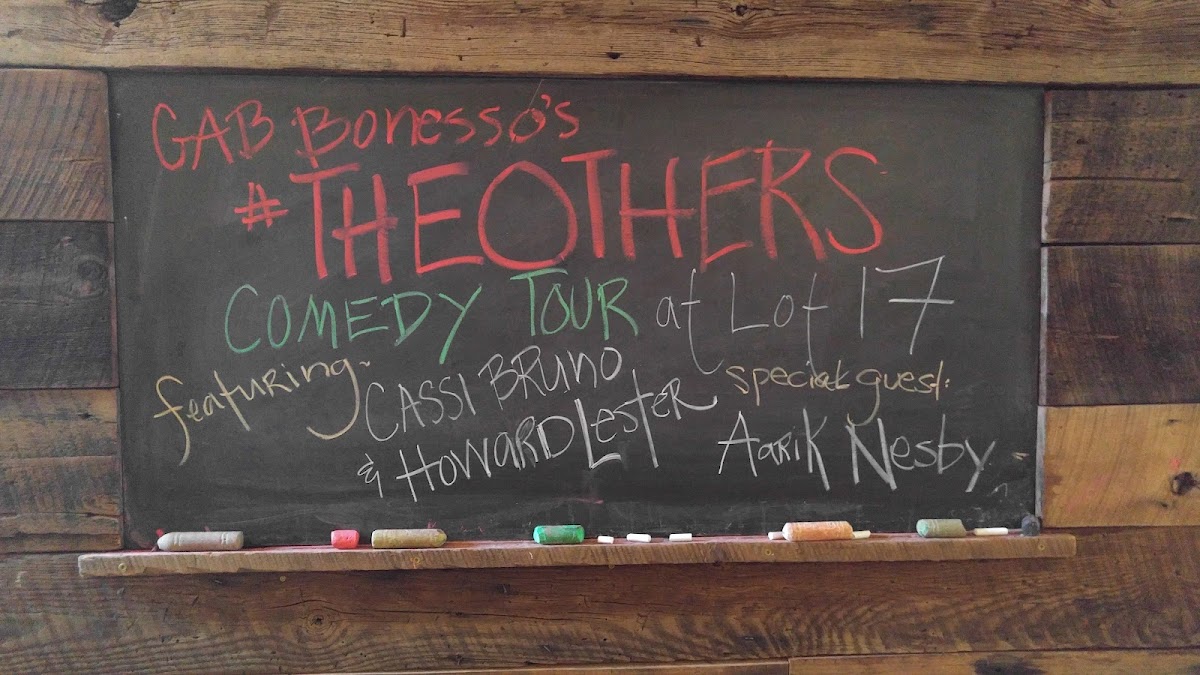 GAB Bonesso's
#THEOTHERS
COMEDY TOUR at Lot 17
featuring CASSI BRUNO special guest:
& HOWARD LESTER Aarik Nesby